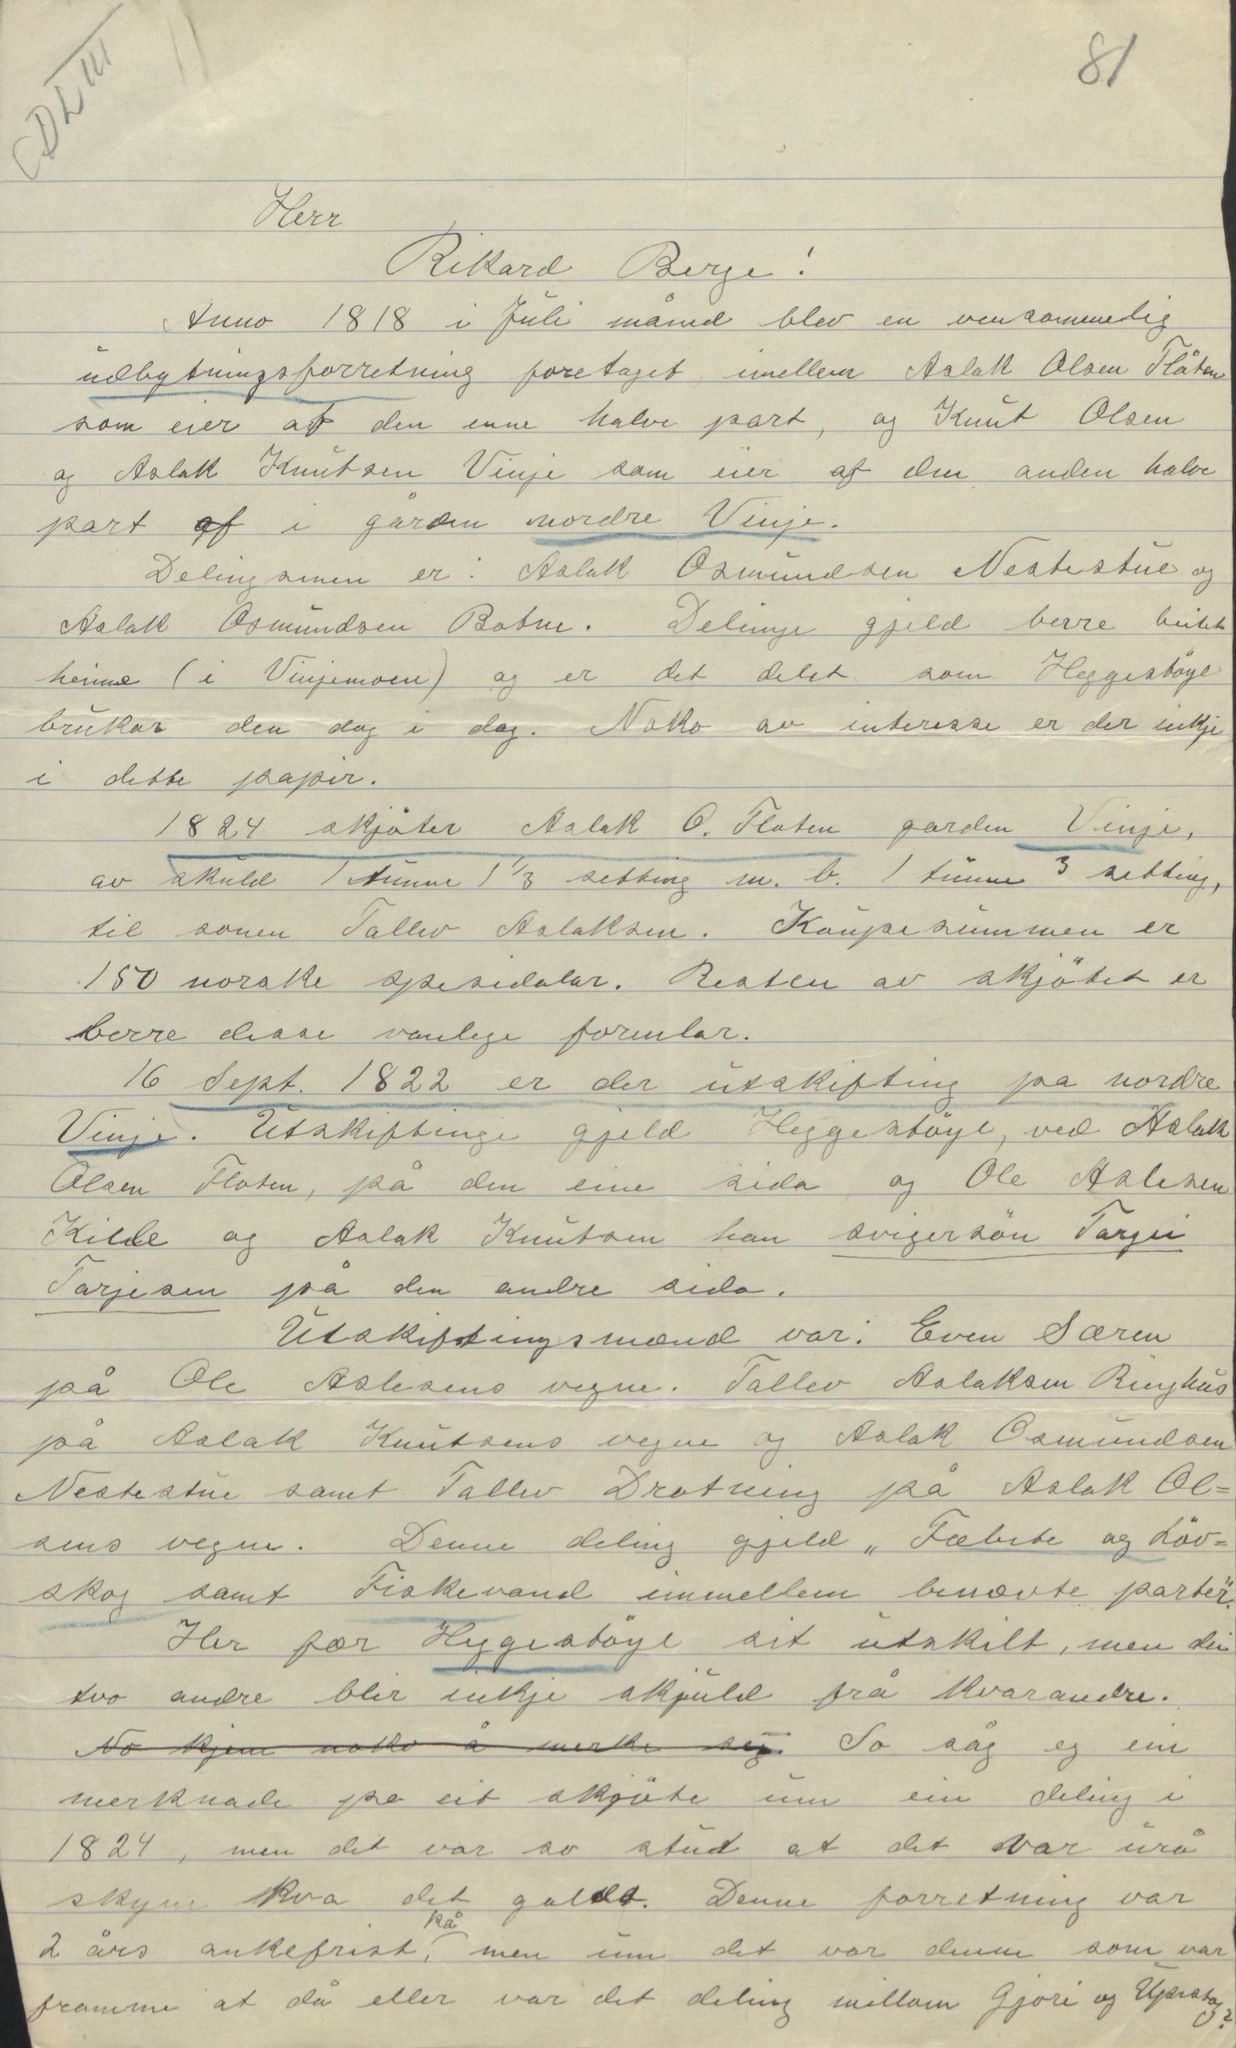 CDLIII
81
Herr
Rikard Berge!
Anno 1818 i Juli måned blev en vensommelig
udbytningsforretning foretaget imellem Aslak Olsen Flåten
som eier af den enne halve part, og Knut Olsen
og Aslak Knutsen Vinje som eier af den anden halve
part af i gården nordre Vinje.
Delingsmen er: Aslak Osmundsen Nestestue og
Aslak Osmundsen Botne. Delinje gjeld berre beitet
heime (i Vinjemoen) og er det delet som Heggestöyl
brukar den dag i dag. Noko av interesse er der inkje
i dette papir.
1824 skjöter Aslak O. Flaten garden Vinje,
av skuld 1 tunne 1 1/3 setting m. b. 1 tunne 3 setting,
til sonen Tallev Aslaksen. Kaupesummen er
150 norske spesidalar. Resten av skjötet er
berre desse vanlege formlar.
16 Sept. 1822 er der utskifting på nordre
Vinje. Utskiftinge gjeld Heggestöyl, ved Aslak
Olsen Floten, på den eine sida og Ole Aslesen
Kilde og Aslak Knutsen han svigersön Targei
Tarjesen på den andre sida.
Utskiftingsmænd var: Even Særen
på Ole Aslesens vegne. Tallev Aslaksen Ringhus
på Aslak Knutsens vegne og Aslak Osmundsen
Nestestue samt Tallev Drotning på Aslak Ol=
sens vegne. Denne deling gjeld „Fæbete og Löv=
skog samt Fiskevand immellem benævte parter".
Her fær Heggestöyl sit utskilt, men dei
tvo andre blir inkje skjuld frå kvarandre.
No kjem noko å merke seg. So såg eg ein
merknade på eit skjöte um ein deling i
1824, men det var so stut at det var urå
skyne kva det galdt. Denne forretning var
på
2 års ankefrist, men um det var denne som var
framme at då eller var det deling millom Gjöri og Uppistog?